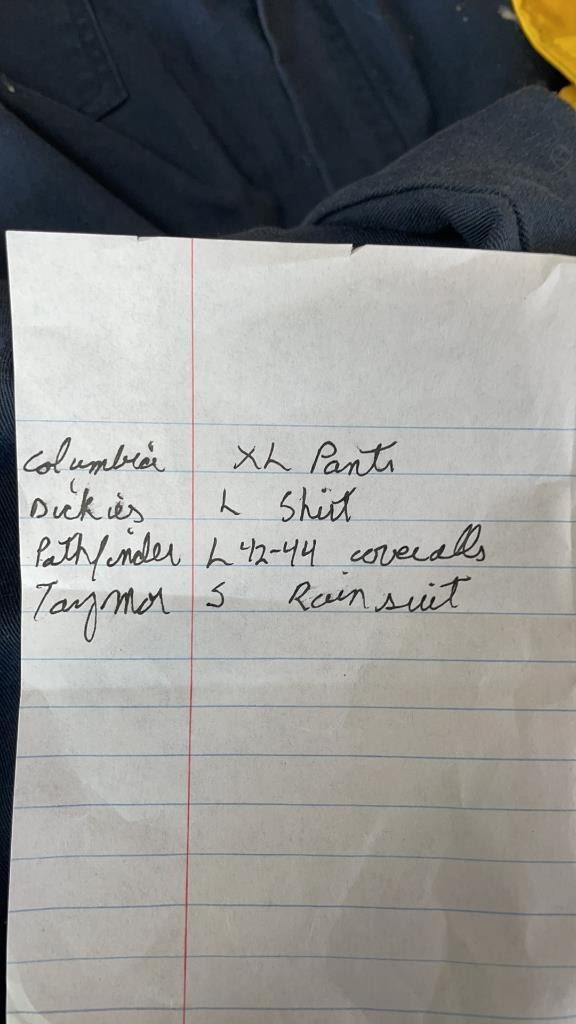 Columbia XL Pants
Dickies L Shirt
Pathfinder L 42-44 coveralls
Taymor S Rain suit